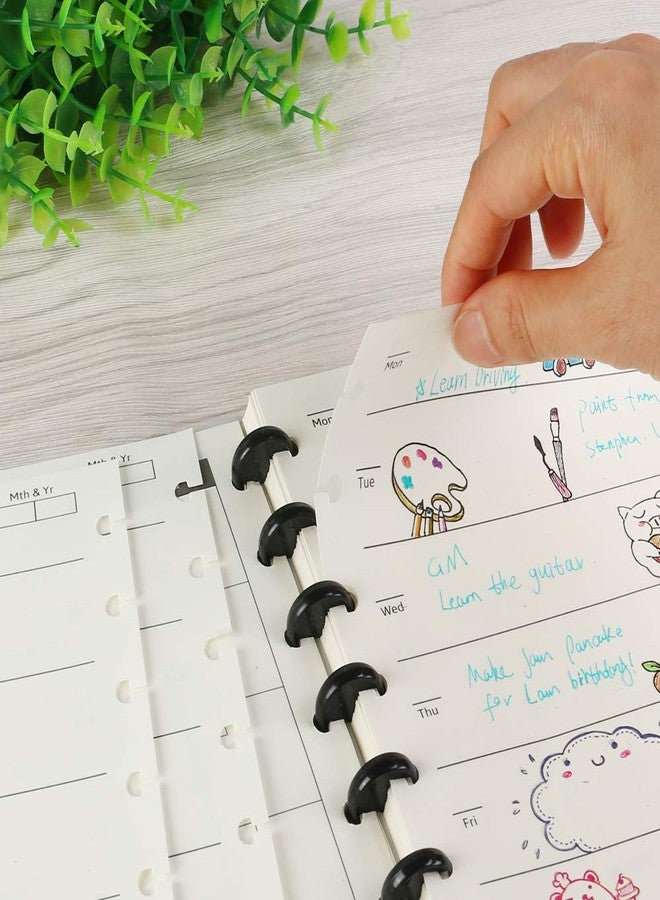 Mth & Yr
Mth & Yr
Mon
Mon
☆Learn Driving
Tue
paint from
Stenphen.
am
Wed
Learn the guitar
Make Jam Pancake
Thu
for Lam birthday!
Fri